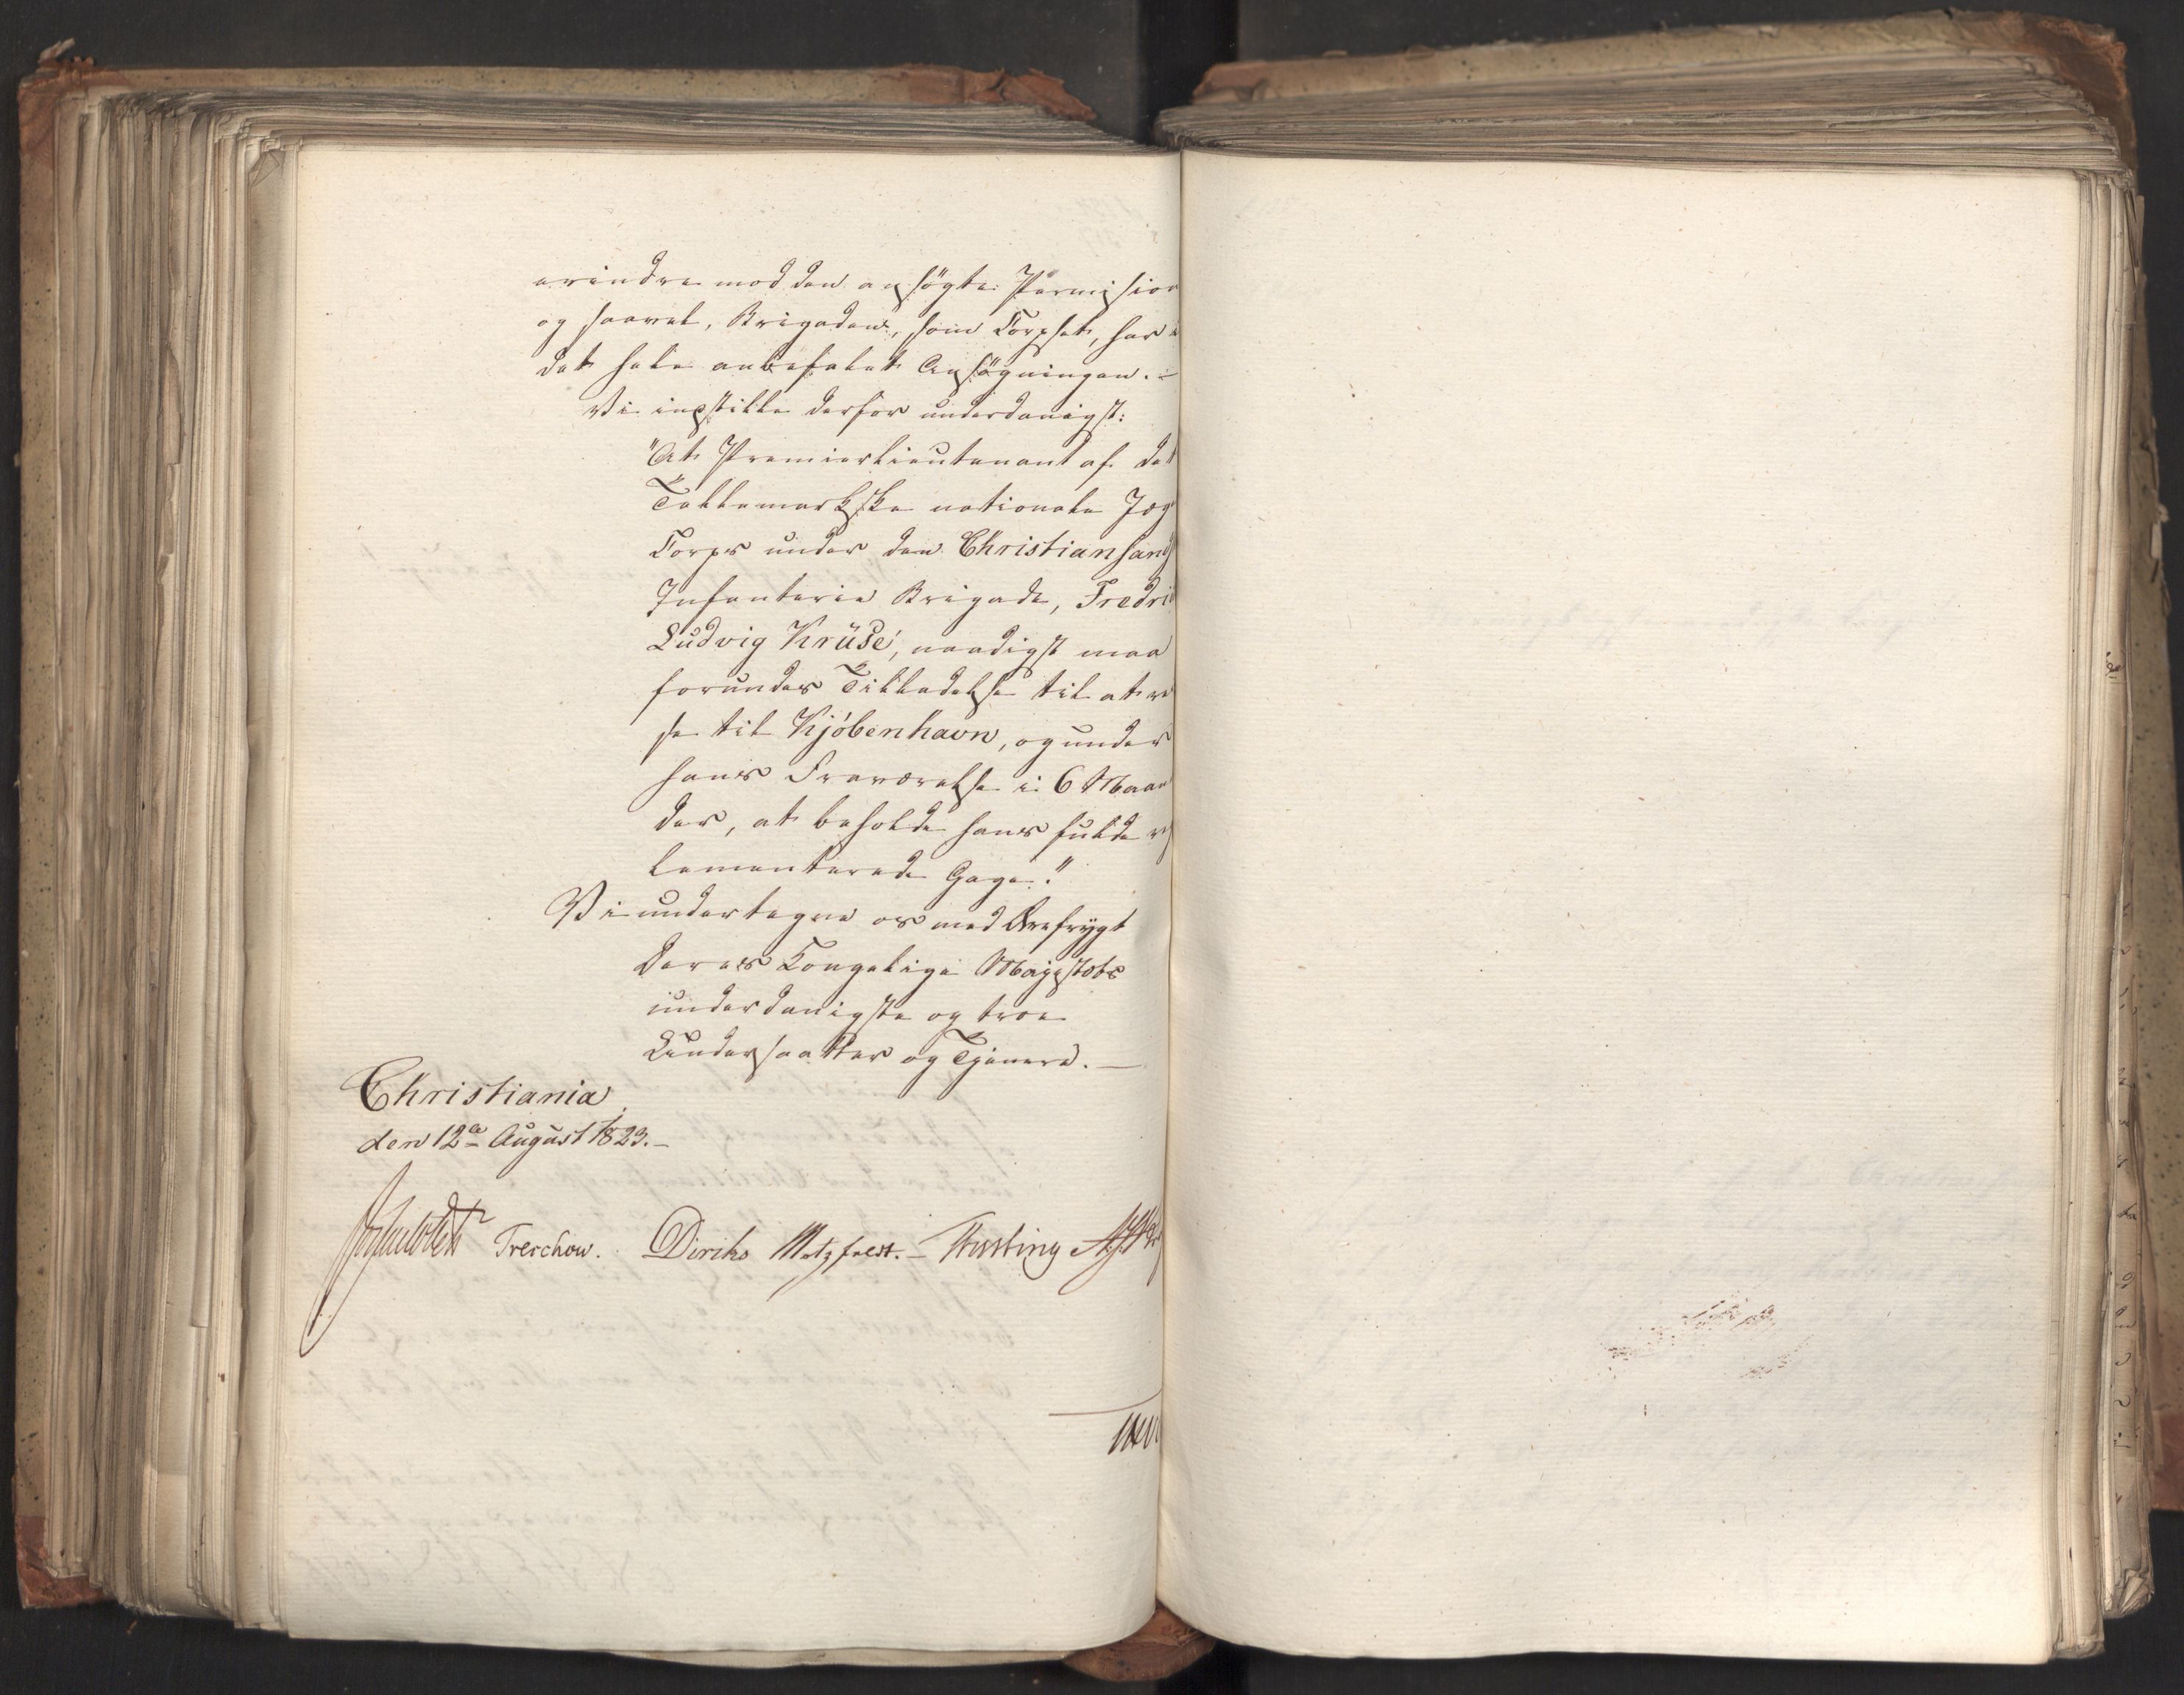 erindre mod den ansögte Permision
og saavel, Brigaden, som Corpset, har i
det hele anbefalet Ansögningen. –
Vi indstille derfor underdanigst:
"At Premierlieutenant af det
Tellemarkske nationale Jæg
Corps under den Christiansand
Infanterie Brigade, Fredri
Ludvig Krüse, naadigst maa
forundes Tilladelse til at re
se til Kjöbenhavn, og under
hans Fraværelse i 6 Maan
der, at beholde hans fulde re
lementerede Gage."
Vi undertegne os med Ærefrygt
Deres Kongelige Majestæts
underdanigste og troe
Undersaatter og Tjenere. –
Christiania,
den 12te August 1823. –
Treschow. Diriks Motzfeldt. – Fasting